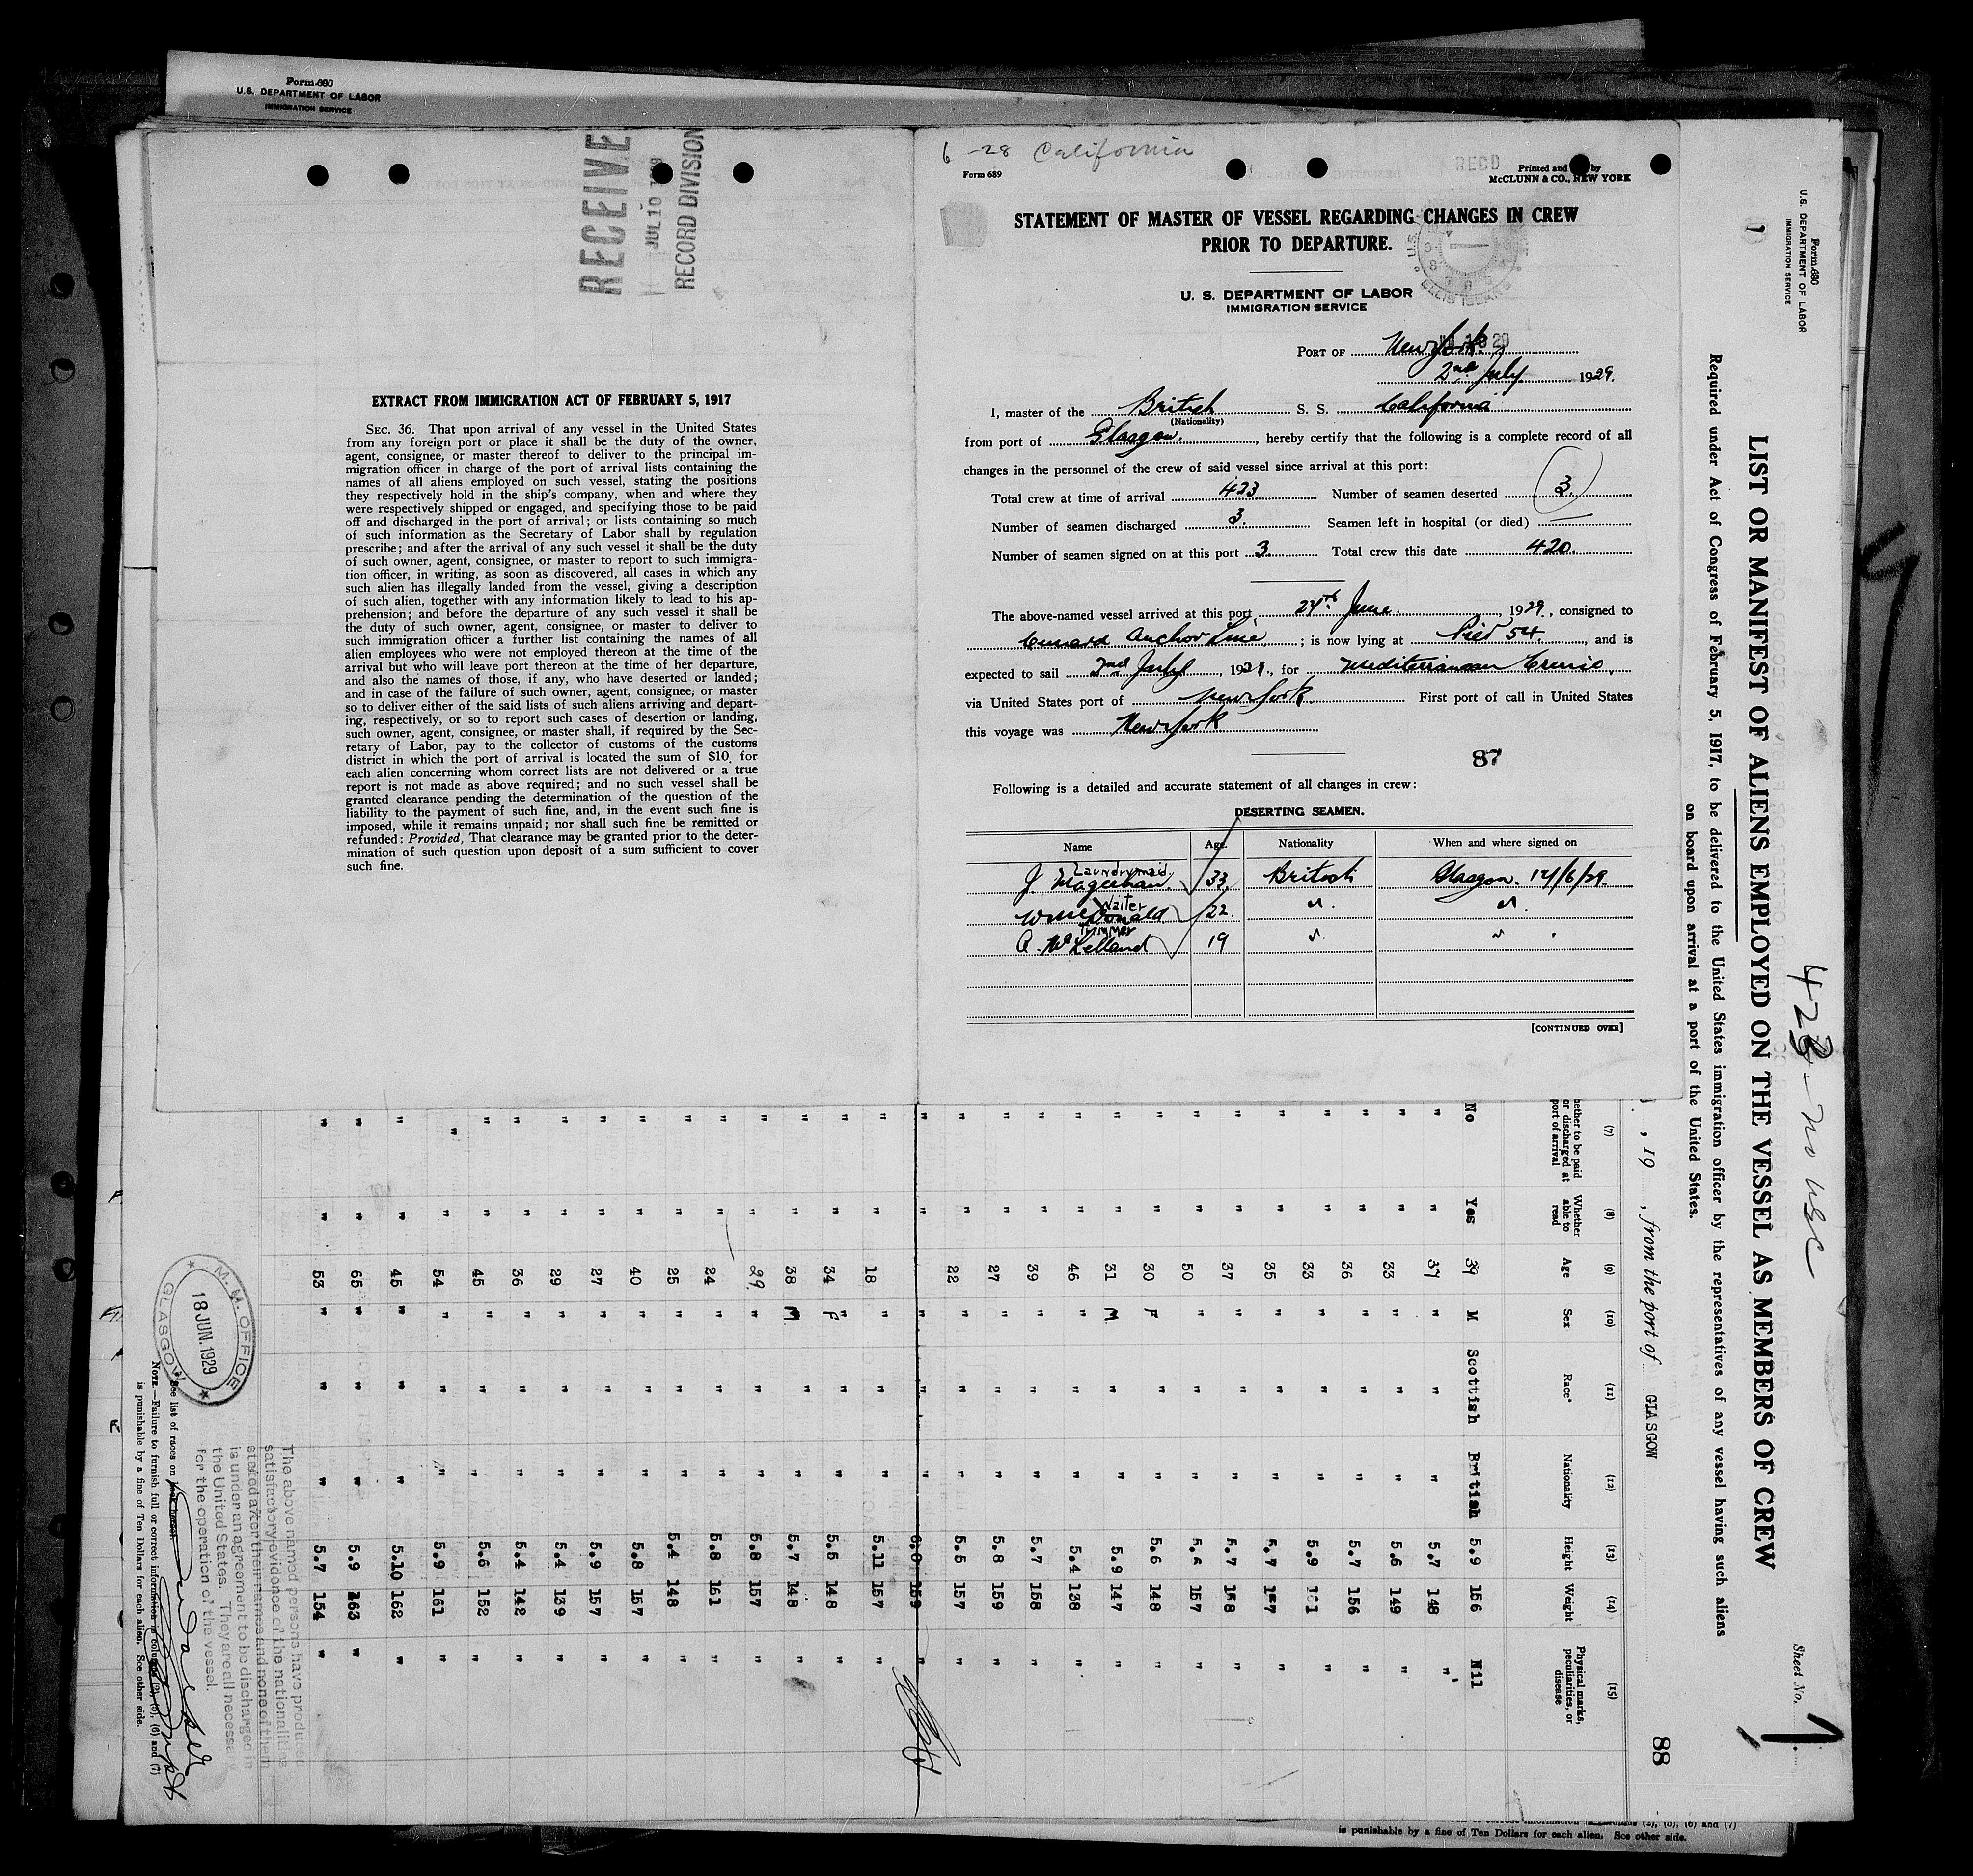 Form 680
U.S. DEPARTMENT OF LABOR
IMMIGRATION SERVICE
RECEIVE
JUL 10
RECORD DIVISION
EXTRACT FROM IMMIGRATION ACT OF FEBRUARY 5, 1917
SEC. 36. That upon arrival of any vessel in the United States
from any foreign port or place it shall be the duty of the owner,
agent, consignee, or master thereof to deliver to the principal im-
migration officer in charge of the port of arrival lists containing the
names of all aliens employed on such vessel, stating the positions
they respectively hold in the ship's company, when and where they
were respectively shipped or engaged, and specifying those to be paid
off and discharged in the port of arrival; or lists containing so much
of such information as the Secretary of Labor shall by regulation
prescribe; and after the arrival of any such vessel it shall be the duty
of such owner, agent, consignee, or master to report to such immigra-
tion officer, in writing, as soon as discovered, all cases in which any
such alien has illegally landed from the vessel, giving a description
of such alien, together with any information likely to lead to his ap-
prehension; and before the departure of any such vessel it shall be
the duty of such owner, agent, consignee, or master to deliver to
such immigration officer a further list containing the names of all
alien employees who were not employed thereon at the time of the
arrival but who will leave port thereon at the time of her departure,
and also the names of those, if any, who have deserted or landed;
and in case of the failure of such owner, agent, consignee, or master
so to deliver either of the said lists of such aliens arriving and depart-
ing, respectively, or so to report such cases of desertion or landing,
such owner, agent, consignee, or master shall, if required by the Sec-
retary of Labor, pay to the collector of customs of the customs
district in which the port of arrival is located the sum of $10 for
each alien concerning whom correct lists are not delivered or a true
report is not made as above required; and no such vessel shall be
granted clearance pending the determination of the question of the
liability to the payment of such fine, and, in the event such fine is
imposed, while it remains unpaid; nor shall such fine be remitted or
refunded: Provided, That clearance may be granted prior to the deter-
mination of such question upon deposit of a sum sufficient to cover
such fine.
6 -28 California
Form 689
RECD
Printed and by
McCLUNN & CO., NEW YORK
STATEMENT OF MASTER OF VESSEL REGARDING CHANGES IN CREW
PRIOR TO DEPARTURE.
ELLIS ISLAND
U. S. DEPARTMENT OF LABOR
IMMIGRATION SERVICE
PORT OF New York
2nd July 1929.
I, master of the British S. S. California
(Nationality)
from port of Glasgow. , hereby certify that the following is a complete record of all
changes in the personnel of the crew of said vessel since arrival at this port:
Total crew at time of arrival 423 Number of seamen deserted 3.
Number of seamen discharged 3. Seamen left in hospital (or died) —
Number of seamen signed on at this port 3. Total crew this date 420.
The above-named vessel arrived at this port 24th June. , 1929, consigned to
Cunard Anchor Line ; is now lying at Pier 54 , and is
expected to sail 2nd July , 1929., for Mediterranean Cruise ,
via United States port of New York. First port of call in United States
this voyage was New York
87
Following is a detailed and accurate statement of all changes in crew:
DESERTING SEAMEN.
Name Age. Nationality When and where signed on
Laundrymaid
J Mageehan. 33 British Glasgow. 14/6/29.
Waiter
W McDonald 22. " "
Trimmer
A. McLelland 19 " " "
[CONTINUED OVER]
Form 680
U.S. DEPARTMENT OF LABOR
IMMIGRATION SERVICE
1
423 - no usc
Sheet No. 1
LIST OR MANIFEST OF ALIENS EMPLOYED ON THE VESSEL AS MEMBERS OF CREW
Required under Act of Congress of February 5, 1917, to be delivered to the United States immigration officer by the representatives of any vessel having such aliens
on board upon arrival at a port of the United States.
, 19 , from the port of GLASGOW
88
(7) (8) (9) (10) (11) (12) (13) (14) (15)
hether to be paid or discharged at port of arrival Whether able to read Age Sex Race* Nationality Height Weight Physical marks, peculiarities, or disease
No Yes 39 M Scottish British 5.9 156 Nil
" " 37 " " " 5.7 148 "
" " 33 " " " 5.6 149 "
" " 36 " " " 5.7 156 "
" " 33 " " " 5.9 161 "
" " 35 " " " 5.7 157 "
" " 37 " " " 5.7 158 "
" " 50 " " " 5.6 157 "
" " 30 F " " 5.6 148 "
" " 31 M " " 5.9 147 "
" " 46 " " " 5.4 138 "
" " 39 " " " 5.7 158 "
" " 27 " " " 5.8 159 "
" " 22 " " " 5.5 157 "
" " " " " 6.0 159 "
" " 18 " " " 5.11 157 "
" " 34 F " " 5.5 148 "
" " 38 M " " 5.7 148 "
" " 29. " " " 5.8 157 "
" " 24 " " " 5.8 161 "
" " 25 " " " 5.4 148 "
" " 40 " " " 5.8 157 "
" " 27 " " " 5.9 157 "
" " 29 " " " 5.4 139 "
" " 36 " " " 5.4 142 "
" " 45 " " " 5.6 152 "
" " 54 " " " 5.9 161 "
" " 45 " " " 5.10 162 "
" " 65 " " " 5.9 163 "
" " 53 " " " 5.7 154 "
The above named persons have produced
satisfactory evidence of the nationalities
stated after their names and none of them
is under an agreement to be discharged in
the United States. They are all necessary
for the operation of the vessel.
M.M. OFFICE
18 JUN. 1929
GLASGOW
See list of races on
NOTE.—Failure to furnish full or correct information in columns (2), (5), (6) and (7)
is punishable by a fine of Ten Dollars for each alien. See other side.
(2), (5), (6) and (7)
is punishable by a fine of Ten Dollars for each alien. See other side.